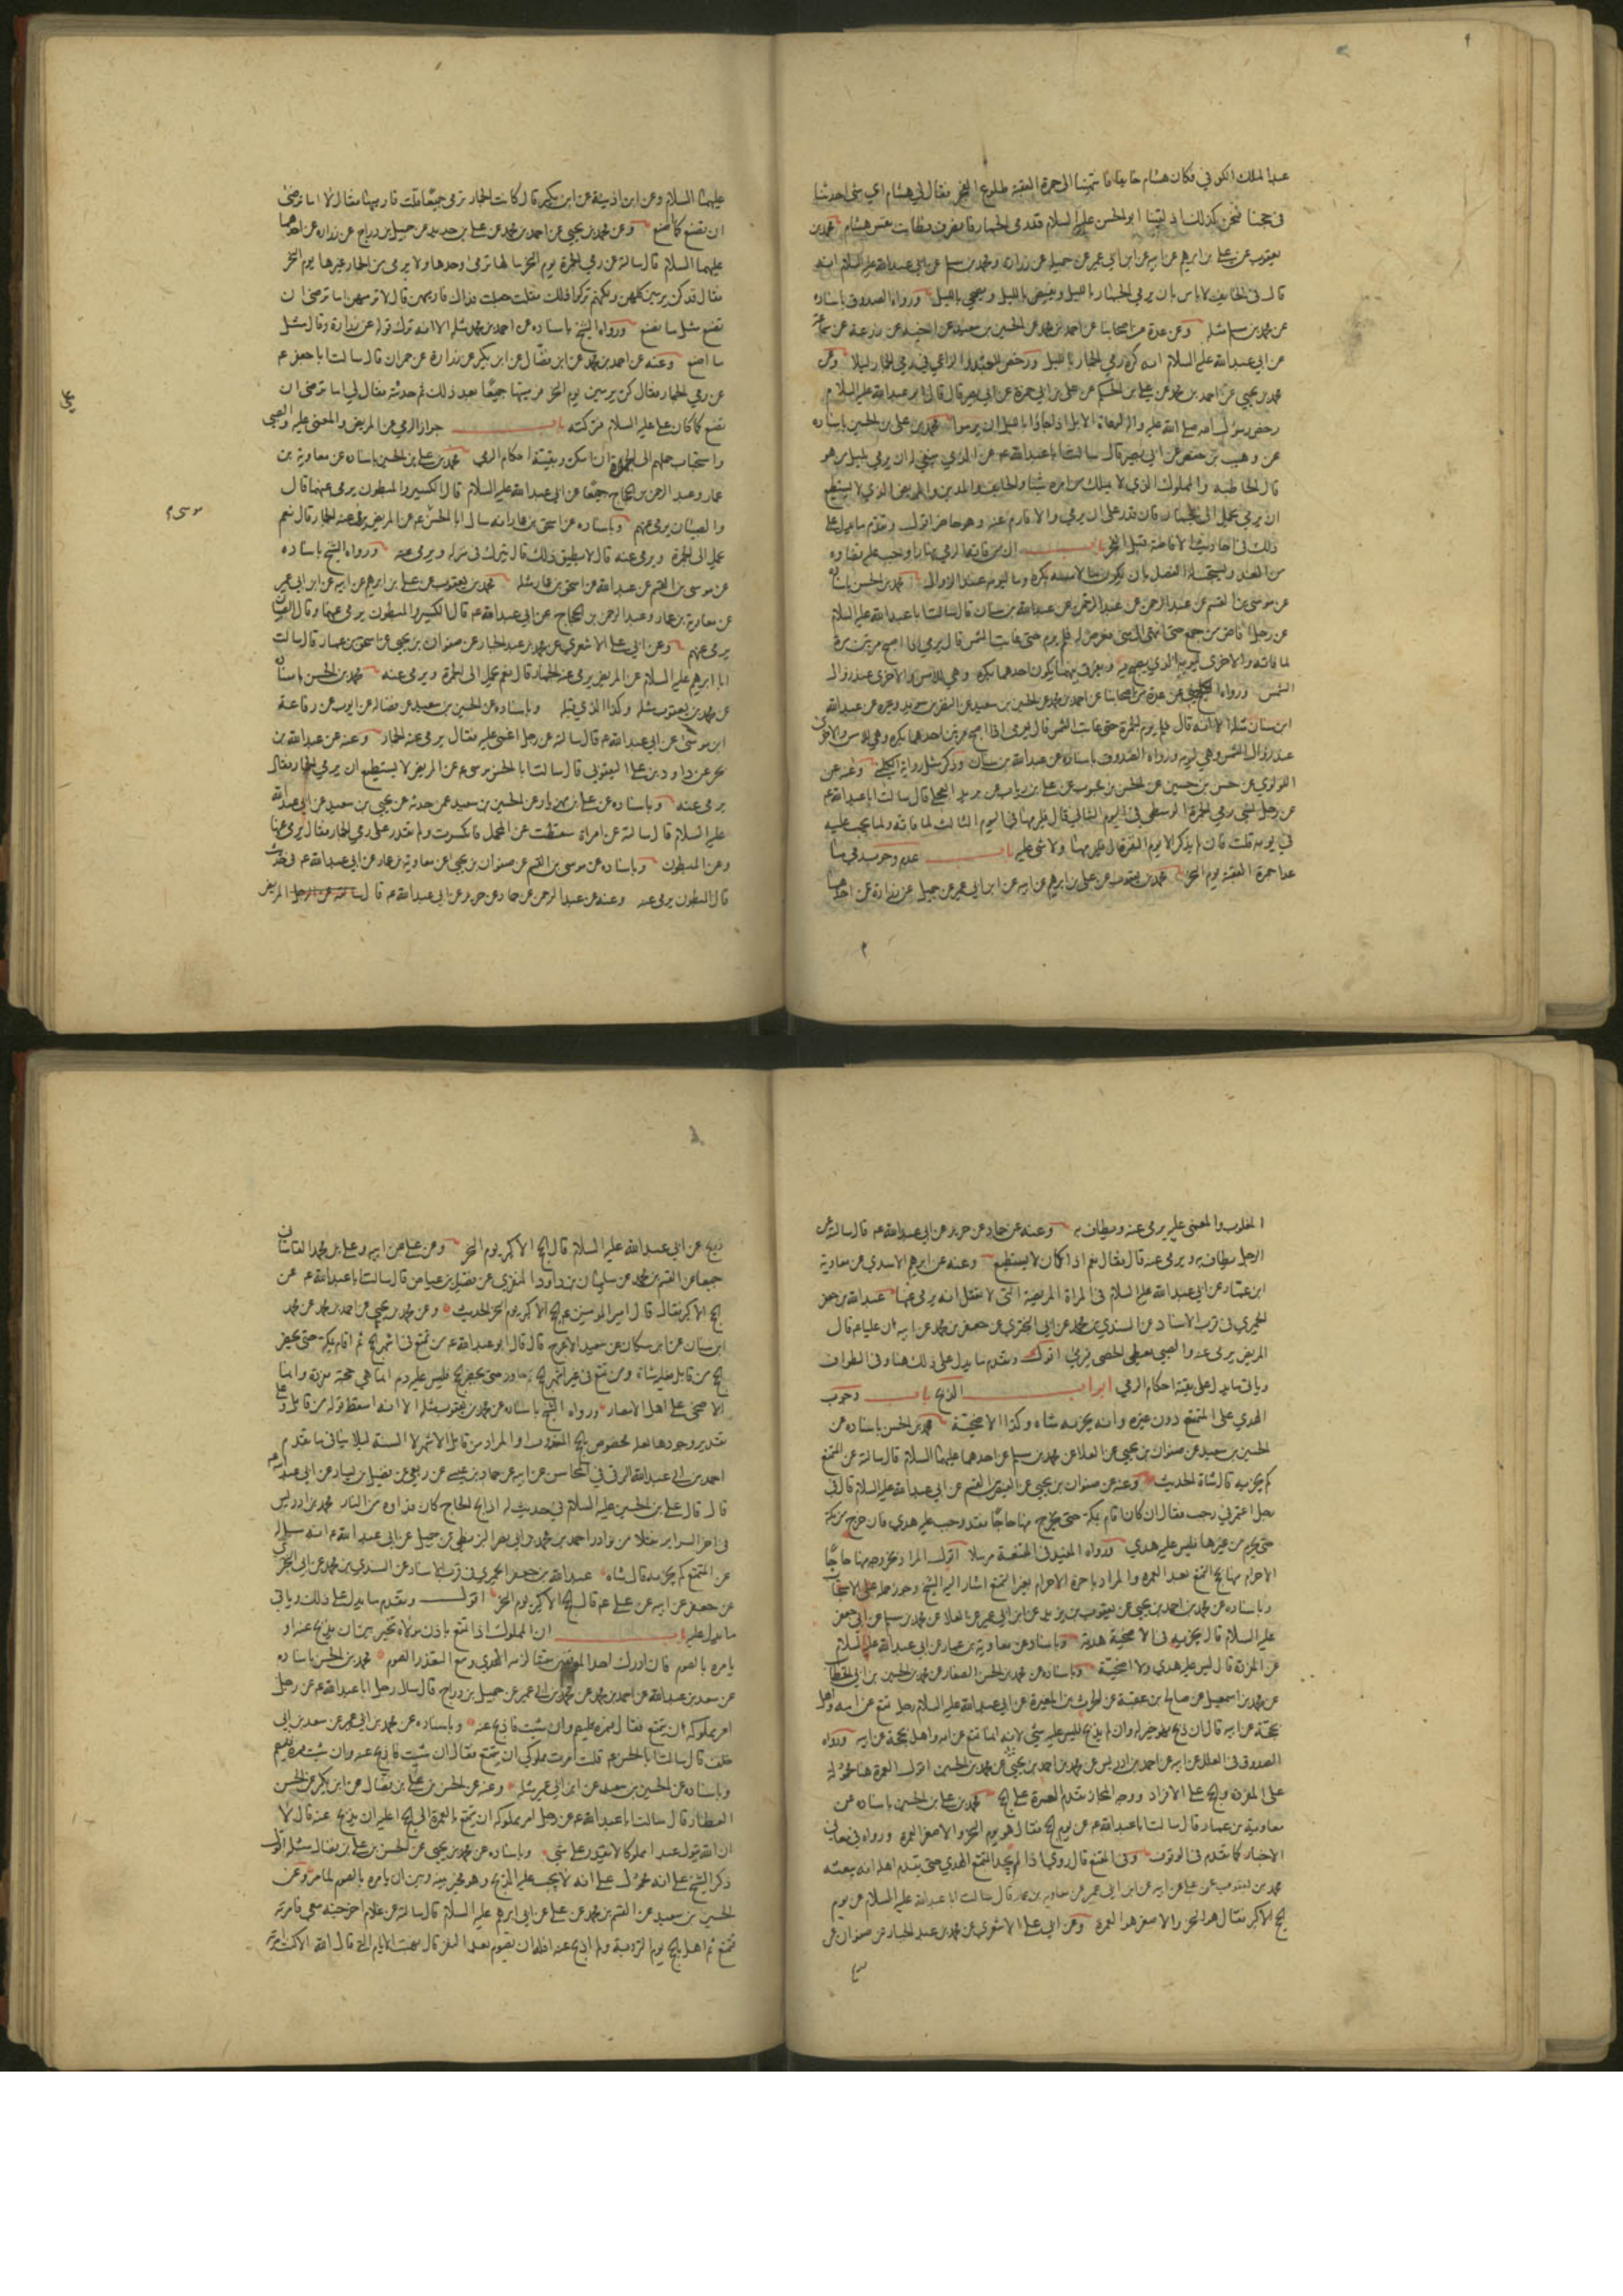 عبد الملك الكوفي فكان هشام خائفا فانتهينا الى جمرة العقبة طلوع الفجر فقال لي هشام اي شي احدثنا
في حجنا فنحن كذلك اذ لقينا ابو الحسن عليه السلام قد رمى الجمار وانصرف فطابت نفس هشام محمد بن
يعقوب عن علي بن ابرهيم عن ابيه عن ابن ابي عمير عن جميل عن زرارة ومحمد بن مسلم عن ابي عبد الله عليه السلام انه
قال في الخايف لا باس بان يرمي الجمار بالليل ويضحي بالليل ويفيض بالليل ورواه الصدوق باسناده
عن محمد بن مسلم مثله وعن عدة من اصحابنا عن احمد بن محمد عن الحسين بن سعيد عن اخيه عن زرعة عن سماعة
عن ابي عبد الله عليه السلام انه كره رمي الجمار بالليل ورخص للعبد والراعي في رمي الجمار ليلا وعن
محمد بن يحيى عن احمد بن محمد عن علي بن الحكم عن علي بن ابي حمزة عن ابي بصير قال قال ابو عبد الله عليه السلام
رخص رسول الله صلى الله عليه واله لرعاة الابل اذا جاؤا بالليل ان يرموا محمد بن علي بن الحسين باسناده
عن وهيب بن حفص عن ابي بصير قال سالت ابا عبد الله ع عن الذي ينبغي له ان يرمي بليل من هو
قال الحاطبة والمملوك الذي لا يملك من امره شيئا والخايف والمدين والمريض الذي لا يستطيع
ان يرمي يحمل الى الجمار فان قدر على ان يرمي والا فارم عنه وهو حاضر اقول وتقدم ما يدل على
ذلك في احاديث الافاضة قبل الفجر باب ان من فاته الرمي نهارا وجب عليه قضاوه
من الغد ويستحب له الفصل بان يكون ما لامسه بكرة وما ليومه عند الزوال محمد بن الحسن باسناده
عن موسى بن القسم عن عبد الرحمن عن عبد الله بن سنان قال سالت ابا عبد الله عليه السلام
عن رجل افاض من جمع حتى انتهى الى منى فعرض له فلم يرم حتى غابت الشمس قال يرمي اذا اصبح مرتين مرة
لما فاته والاخرى ليومه الذي يصبح فيه وليفرق بينهما يكون احدهما بكرة وهي للامس والاخرى عند زوال
الشمس ورواه الكليني عن عدة من اصحابنا عن احمد بن محمد عن الحسين بن سعيد عن النضر بن سويد وغيره عن عبد الله
ابن سنان مثله الا انه قال فلم يرم الجمرة حتى غابت الشمس قال يرمي اذا اصبح مرتين احدهما بكرة وهي للامس والاخرى
عند زوال الشمس وهي ليومه ورواه الصدوق باسناده عن عبد الله بن سنان وذكر مثل رواية الكليني وعنه عن
اللولوي عن حسن بن حسين عن الحسن بن محبوب عن علي بن رياب عن بريد العجلي قال سالت ابا عبد الله ع
عن رجل نسي رمي الجمرة الوسطى في اليوم الثاني قال فليرمها في اليوم الثالث لما فاته ولما يجب عليه
في يومه قلت فان لم يذكر الا يوم النفر قال فليرمها ولا شي عليه باب عدم وجوب رمي ما
عدا جمرة العقبة يوم النحر محمد بن يعقوب عن علي بن ابرهيم عن ابيه عن ابن ابي عمير عن جميل عن زرارة عن احدهما
عليهما السلام وعن ابن اذينة عن ابن بكير قال كانت الجمار ترمى جميعا قلت فارميها فقال لا اما ترضى
ان تصنع كما اصنع وعن محمد بن يحيى عن احمد بن محمد عن علي بن حديد عن جميل بن دراج عن زرارة عن احدهما
عليهما السلام قال سالته عن رمي الجمرة يوم النحر مالها ترمى وحدها ولا يرمى من الجمار غيرها يوم النحر
فقال قد كن يرمين كلهن ولكنهم تركوا ذلك فقلت جعلت فداك فارميهن قال لا ترمهن اما ترضى ان
تصنع مثل ما نصنع ورواه الشيخ باسناده عن احمد بن محمد مثله الا انه ترك قوله عن زرارة وقال مثل
ما اصنع وعنه عن احمد بن محمد عن ابن فضال عن ابن بكير عن زرارة عن حمران قال سالت ابا جعفر ع
عن رمي الجمار فقال كن يرمين يوم النحر فرميتها جميعا بعد ذلك ثم حدثته فقال لي اما ترضى ان
تصنع كما كان علي عليه السلام فتركته باب جواز الرمي عن المريض والمغمى عليه والصبي
واستحباب حملهم الى الجمرة ان امكن وبقية احكام الرمي محمد بن علي بن الحسين باسناده عن معاوية بن
عمار وعبد الرحمن بن الحجاج جميعا عن ابي عبد الله عليه السلام قال الكسير والمبطون يرمى عنهما قال
والصبيان يرمى عنهم وباسناده عن اسحق بن عمار انه سال ابا الحسن ع عن المريض يرمى عنه الجمار قال نعم
يحمل الى الجمرة ويرمى عنه قال لا يطيق ذلك قال يترك في منزله ويرمى عنه ورواه الشيخ باسناده
عن موسى بن القسم عن عبد الله عن اسحق بن عمار مثله محمد بن يعقوب عن علي بن ابرهيم عن ابيه عن ابن ابي عمير
عن معاوية بن عمار وعبد الرحمن بن الحجاج عن ابي عبد الله ع قال الكسير والمبطون يرمى عنهما وقال الصبيان
يرمى عنهم وعن ابي علي الاشعري عن محمد بن عبد الجبار عن صفوان بن يحيى عن اسحق بن عمار قال سالت
ابا ابرهيم عليه السلام عن المريض يرمى عنه الجمار قال نعم يحمل الى الجمرة ويرمى عنه محمد بن الحسن باسناده
عن محمد بن يعقوب مثله وكذا الذي قبله وباسناده عن الحسين بن سعيد عن فضالة عن ايوب عن رفاعة
ابن موسى عن ابي عبد الله ع قال سالته عن رجل اغمي عليه فقال يرمى عنه الجمار وعنه عن عبد الله بن
بحر عن داود بن علي اليعقوبي قال سالت ابا الحسن موسى ع عن المريض لا يستطيع ان يرمي الجمار فقال
يرمى عنه وباسناده عن علي بن مهزيار عن الحسين بن سعيد عمن حدثه عن يحيى بن سعيد عن ابي عبد الله
عليه السلام قال سالته عن امراة سقطت عن المحمل فانكسرت ولم تقدر على رمي الجمار فقال يرمى عنها
وعن المبطون وباسناده عن موسى بن القسم عن صفوان بن يحيى عن معاوية بن عمار عن ابي عبد الله ع في حديث
قال المبطون يرمى عنه وعنه عن عبد الرحمن عن حماد عن حريز عن ابي عبد الله ع قال المريض
المغلوب والمغمى عليه يرمى عنه ويطاف به وعنه عن حماد عن حريز عن ابي عبد الله ع قال سالته عن
الرجل يطاف به ويرمى عنه قال فقال نعم اذا كان لا يستطيع وعنه عن ابرهيم الاسدي عن معاوية
ابن عمار عن ابي عبد الله عليه السلام في المراة المريضة التي لا تعقل انه يرمى عنها عبد الله بن جعفر
الحميري في قرب الاسناد عن السندي بن محمد عن ابي البختري عن جعفر بن محمد عن ابيه ان عليا ع قال
المريض يرمى عنه والصبي يعطى الحصى فيرمي اقول وتقدم ما يدل على ذلك هنا وفي الطواف
وياتي ما يدل على بقية احكام الرمي ابواب الذبح باب وجوب
الهدي على المتمتع دون غيره وانه يجزيه شاة وكذا الاضحية محمد بن الحسن باسناده عن
الحسين بن سعيد عن صفوان بن يحيى عن العلا عن محمد بن مسلم عن احدهما عليهما السلام قال سالته عن المتمتع
كم يجزيه قال شاة الحديث وعنه عن صفوان بن يحيى عن العيص بن القسم عن ابي عبد الله عليه السلام قال في
رجل اعتمر في رجب فقال ان كان اقام بمكة حتى يخرج منها حاجا فقد وجب عليه هدي فان خرج من مكة
حتى يحرم من غيرها فليس عليه هدي ورواه المفيد في المقنعة مرسلا اقول المراد بخروجه منها حاجا
الاحرام منها بحج التمتع بعد العمرة
وباسناده عن محمد بن احمد بن يحيى عن يعقوب بن يزيد عن ابن ابي عمير عن العلا عن محمد بن مسلم عن ابي جعفر
عليه السلام قال يجزيه في الاضحية هديه وباسناده عن معاوية بن عمار عن ابي عبد الله عليه السلام
عن المفرد قال ليس عليه هدي ولا اضحية وباسناده عن محمد بن الحسن الصفار عن محمد بن الحسين بن ابي الخطاب
عن محمد بن اسمعيل عن صالح بن عقبة عن الحرث بن المغيرة عن ابي عبد الله عليه السلام رجل تمتع عن امه واهل
بحجة عن ابيه قال ان ذبح فهو خير له وان لم يذبح فليس عليه شي لانه انما تمتع عن امه واهل بحجة عن ابيه ورواه
الصدوق في العلل عن ابيه عن احمد بن ادريس عن محمد بن احمد بن يحيى عن محمد بن الحسين اقول العمرة هنا محمولة
على المفردة والحج على الافراد ووجه المجاز تقدم العمرة على الحج محمد بن علي بن الحسين باسناده عن
معاوية بن عمار قال سالت ابا عبد الله ع عن يوم الحج فقال هو يوم النحر والاصغر العمرة ورواه في معاني
الاخبار كما تقدم في الوقوف وفي المقنع قال روي اذا لم يجد المتمتع الهدي حتى يقدم اهله انه يبعث به
محمد بن يعقوب عن علي عن ابيه عن ابن ابي عمير عن معاوية بن عمار قال سالت ابا عبد الله عليه السلام عن يوم
الحج الاكبر فقال هو النحر والاصغر هو العمرة وعن ابي علي الاشعري عن محمد بن عبد الجبار عن صفوان عن
ذريح عن ابي عبد الله عليه السلام قال الحج الاكبر يوم النحر وعن علي عن ابيه وعلي بن محمد القاساني
جميعا عن القسم بن محمد عن سليمان بن داود المنقري عن فضيل بن عياض قال سالت ابا عبد الله ع عن
الحج الاكبر فقال قال امير المومنين ع الحج الاكبر يوم النحر الحديث وعن محمد بن يحيى عن احمد بن محمد عن محمد
ابن سنان عن ابن مسكان عن سعيد الاعرج قال قال ابو عبد الله ع من تمتع في اشهر الحج ثم اقام بمكة حتى يحضر
الحج من قابل فعليه شاة ومن تمتع في غير اشهر الحج ثم جاور حتى يحضر الحج فليس عليه دم انما هي حجة مفردة وانما
الاضحى على اهل الامصار ورواه الشيخ باسناده عن محمد بن يعقوب مثله الا انه اسقط قوله من قابل
احمد بن ابي عبد الله البرقي في المحاسن عن ابيه عن حماد بن عيسى عن ربعي عن فضيل بن يسار عن ابي عبد الله ع
قال قال علي بن الحسين عليه السلام في حديث له اذا ذبح الحاج كان فداوه من النار محمد بن ادريس
في اخر السراير نقلا من نوادر احمد بن محمد بن ابي نصر البزنطي عن جميل عن ابي عبد الله ع انه سئل
عن المتمتع كم يجزيه قال شاة عبد الله بن جعفر الحميري في قرب الاسناد عن السندي بن محمد عن ابي البختري
عن جعفر عن ابيه عن علي ع قال الحج الاكبر يوم النحر اقول وتقدم ما يدل على ذلك وياتي
ما يدل عليه باب ان المملوك اذا تمتع باذن مولاه تخير بين ان يذبح عنه او
يامره بالصوم فان ادرك احد الموقفين معتقا لزمه الهدي ومع التعذر الصوم محمد بن الحسن باسناده
عن سعد بن عبد الله عن احمد بن محمد عن محمد بن ابي عمير عن جميل بن دراج قال سال رجل ابا عبد الله ع عن رجل
امر مملوكه ان يتمتع فقال فمره فليصم وان شئت فاذبح عنه وباسناده عن محمد بن ابي عمير عن سعد بن ابي
خلف قال سالت ابا الحسن ع قلت امرت مملوكي ان يتمتع فقال ان شئت فاذبح عنه وان شئت فمره فليصم
وباسناده عن الحسين بن سعيد عن ابن ابي عمير مثله وعنه عن الحسن بن علي بن فضال عن ابن بكير عن الحسن
العطار قال سالت ابا عبد الله ع عن رجل امر مملوكه ان يتمتع بالعمرة الى الحج اعليه ان يذبح عنه قال لا
ان الله يقول عبدا مملوكا لا يقدر على شي وباسناده عن محمد بن يحيى عن الحسن بن علي بن فضال مثله اقول
ذكر الشيخ على انه محمول على انه لا يجب عليه الذبح وهو مخير بينه وبين ان يامره بالصوم لما مر وعن
الحسين بن سعيد عن القسم بن محمد عن علي عن ابي ابرهيم عليه السلام قال سالته عن غلام اخرجته معي فامرته
فتمتع ثم اهل بالحج يوم التروية ولم اذبح عنه افله ان يصوم بعد النفر قال ذهبت الايام التي قال الله الا كنت امرته